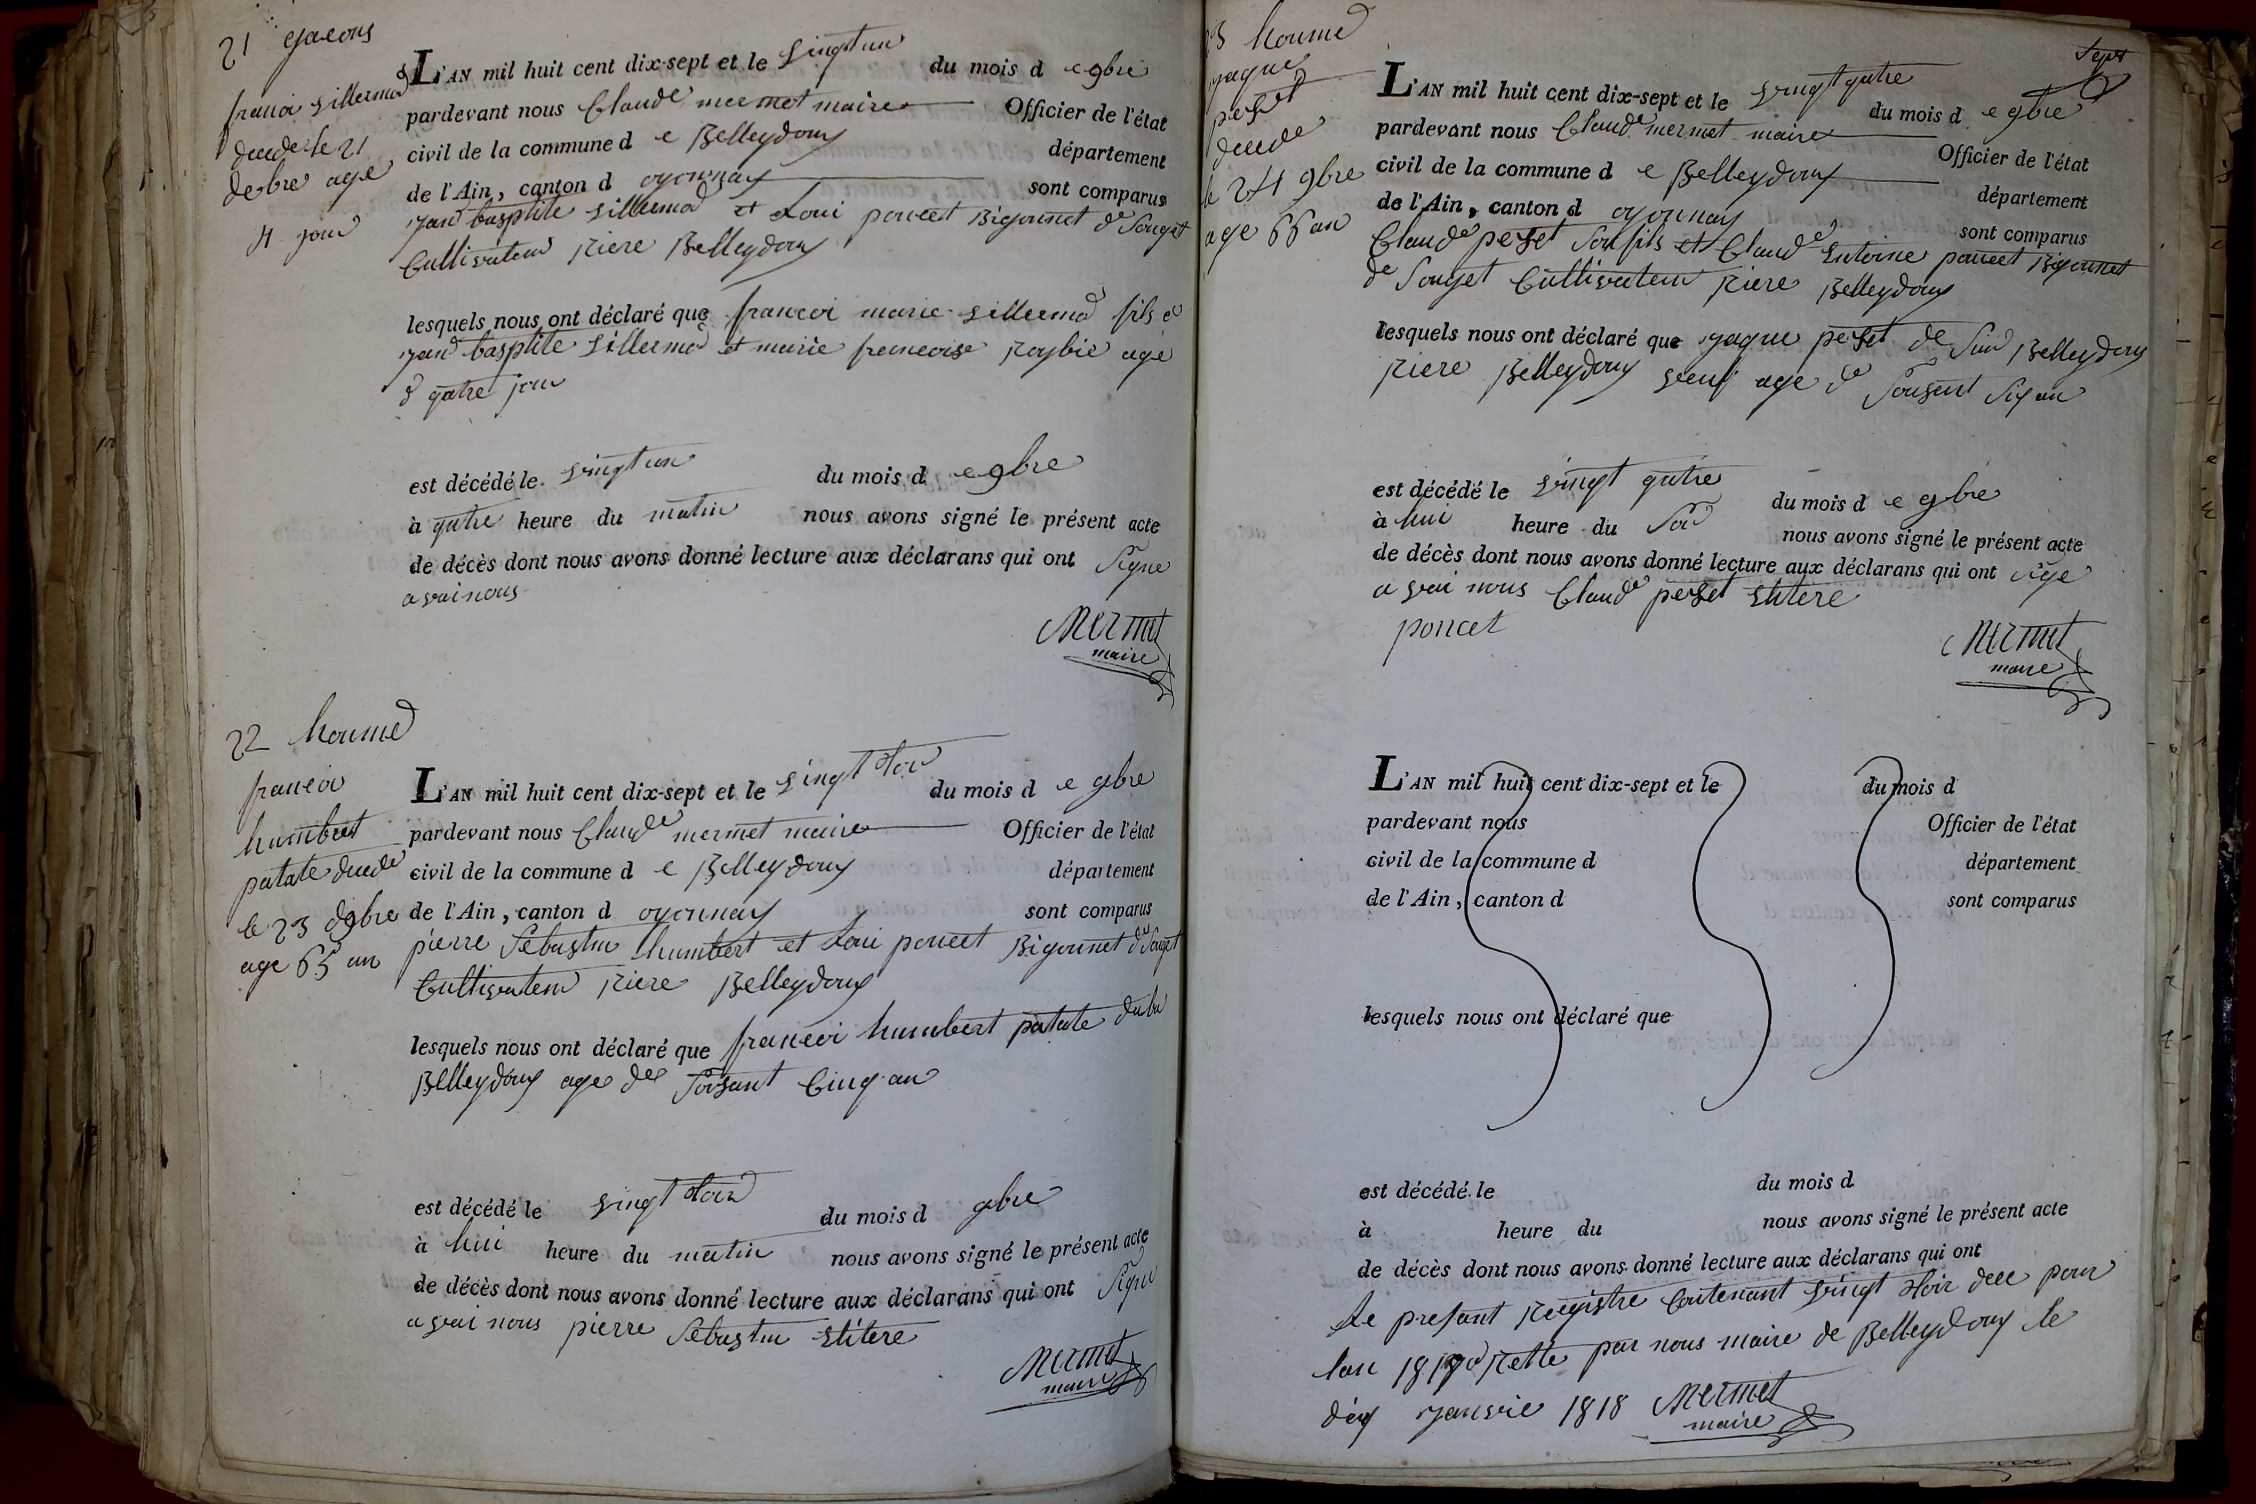 21 garcons
francoi sillermod
decede le 21
de 9bre age
4 jour
L'AN mil huit cent dix-sept et le vingt un du mois d e 9bre
pardevant nous Claude mermet maire Officier de l'état
civil de la commune d e Belleydoux département
de l'Ain, canton d oyonnax sont comparus
jean basptite sillermod et Loui poncet Bigonnet de Souget
Cultivateur riere Belleydoux
lesquels nous ont déclaré que francoi marie sillermod fils de
jean basptite sillermod et marie francoise roybie age
d quatre jour
est décédé le vingt un du mois d e 9bre
à quatre heure du matin nous avons signé le présent acte
de décès dont nous avons donné lecture aux déclarans qui ont signe
avai nous
Mermet
maire
22 homme
francoi
humbert
patate decede
le 23 9bre
age 65 an
L'AN mil huit cent dix-sept et le vingt troi du mois d e 9bre
pardevant nous Claude mermet maire Officier de l'état
civil de la commune d e Belleydoux département
de l'Ain, canton d oyonnax sont comparus
pierre Sebastin humbert et Loui poncet Bigonnet du Souget
Cultivateur riere Belleydoux
lesquels nous ont déclaré que francoi humbert patate du bu
Belleydoux age de soisant Cinq an
est décédé le vingt troi du mois d 9bre
à hui heure du matin nous avons signé le présent acte
de décès dont nous avons donné lecture aux déclarans qui ont signe
avai nous pierre Sebastin
Mermet
maire
Sept
23 homme
jaque
perset
decede
le 24 9bre
age 66 an
L'AN mil huit cent dix-sept et le vingt quatre du mois d e 9bre
pardevant nous Claude mermet maire Officier de l'état
civil de la commune d e Belleydoux département
de l'Ain, canton d oyonnax sont comparus
Claude perset son fils et Claude Antoine poncet Bigonnet
de Souget Cultivateur riere Belleydoux
lesquels nous ont déclaré que jaque perset de Belleydoux
riere Belleydoux veuf age de soisent six an
est décédé le vingt quatre du mois d e 9bre
à hui heure du soir nous avons signé le présent acte
de décès dont nous avons donné lecture aux déclarans qui ont
avai nous Claude perset
poncet
Mermet
maire
L'AN mil huit cent dix-sept et le du mois d
pardevant nous Officier de l'état
civil de la commune d département
de l'Ain, canton d sont comparus
lesquels nous ont déclaré que
est décédé le du mois d
à heure du nous avons signé le présent acte
de décès dont nous avons donné lecture aux déclarans qui ont
Le presant registre Contenant vingt troi dece pour
lan 1817 par nous maire de Belleydoux le
dix janvie 1818 Mermet
maire